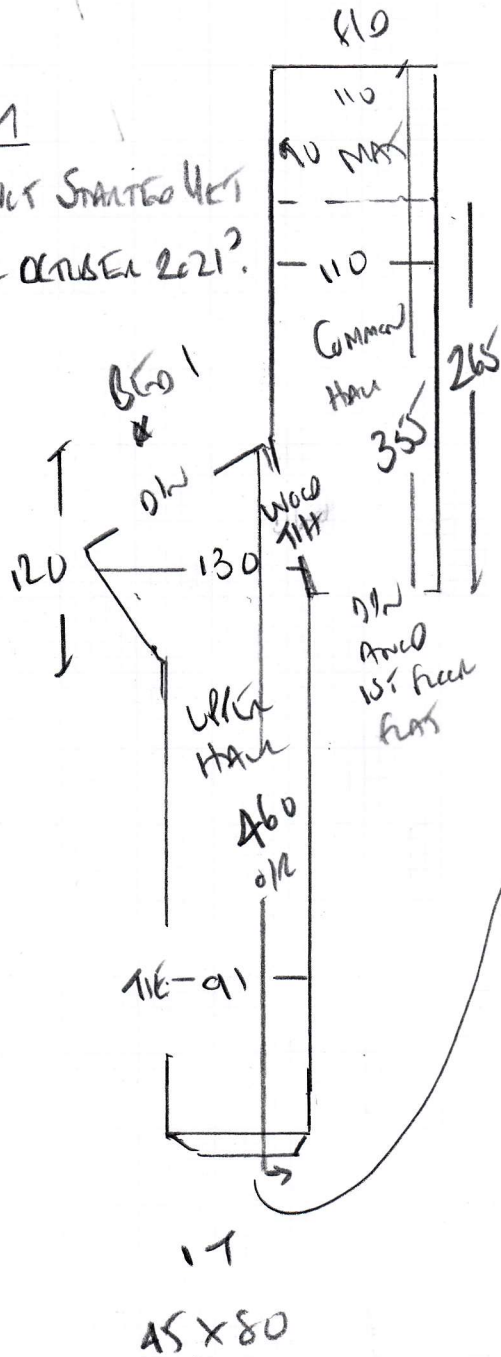 110
90 MAX
NOT STARTED YET
OCTOBER 2021?
110
COMMON
HALL
265
355
BED 1
D/W
WOOD
120
130
D/W
AND
1ST FLOOR
FLAT
UPPER
HALL
460
O/R
TIE-91
1T
45 X 80